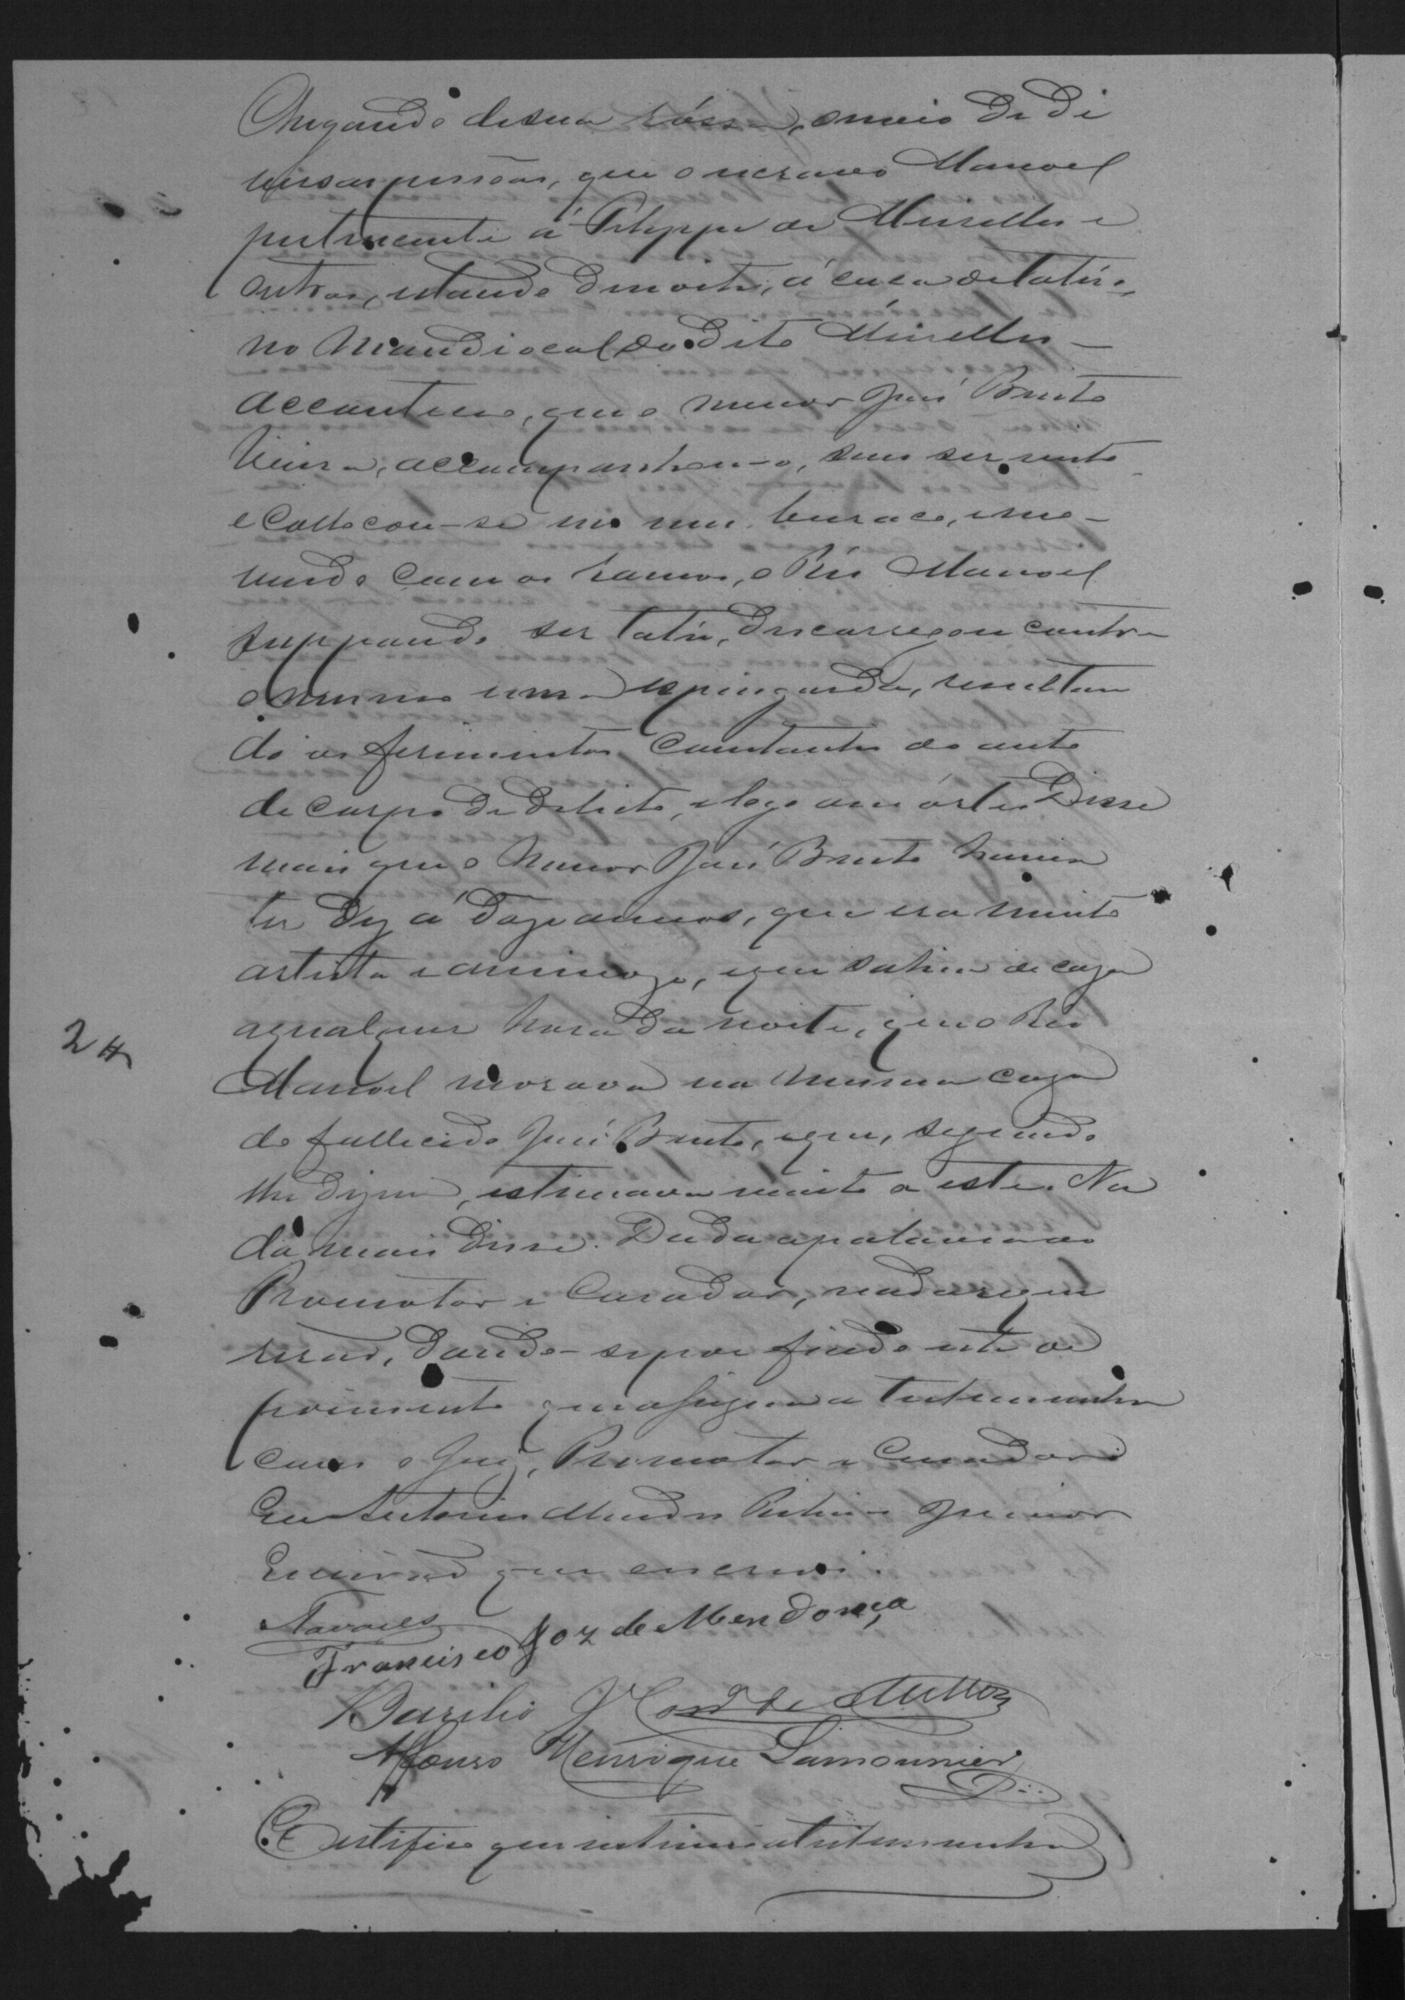 Chegando de sua róssa, ouvio de di
versas pessôas, que o escravo Manoel
pertencente á Felippe de Meirelles e
outros, estando de noite, á caça de tatú,
no mandiocal do dito Meirelles
acconteceo, que o menor José Bento
Vieira, accompanhou-o, sem ser visto
e collocou-se em um buraco, e mo-
vendo com os ramos, o Réo Manoel
suppondo ser tatú, descarregou contra
o mesmo uma espingarda, resultan
do os ferimentos constantes do auto
de corpo de delicto, e logo a mórte. Disse
mais que o menor José Bento havia
ter dez á doze annos, que era muito
artista e animozo, e que sahia de caza
a qualquer hora da noite, que o Réo
Manoel morava na mesma caza
do fallecido José Bento, e que, segundo
lhe dizia, estimava muito a este. Na
da mais disse. Dada a palavra ao
Promotor e Curador, nada reque
rerão, dando-se por findo este de
poimento que assigna a testemunha
com o Juiz, Promotor e Curador.
Eu Antonio Mendes Junior
Escrivão que escrevi.
Tavares
Francisco Joz de Mendonça
Bazilio de
Affonso Henrique Lamounier
Certifico que intimei a testemunha
24